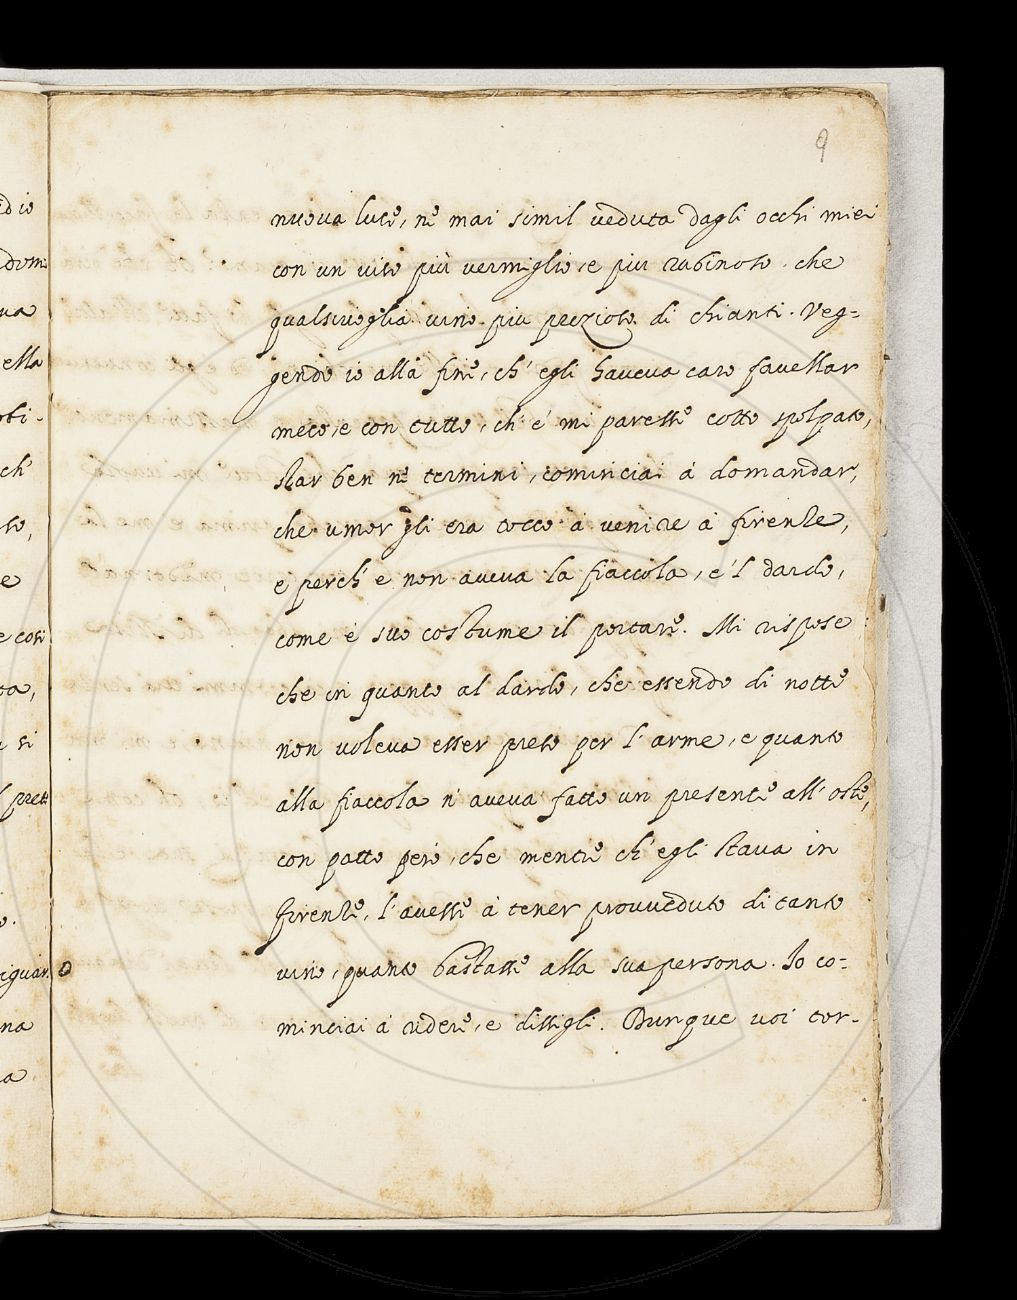 9
nuova luce, ne mai simil veduta dagli occhi miei
con un viso più vermiglio, e piu rubinoso. che
qualsivoglia vino piu prezioso di chianti. Veg=
gendo io alla fine, ch' egli haveva caro favellar
meco, e con tutto, ch' e' mi paresse cotto spolpato,
star ben ne termini, cominciai à domandar,
che umor gli era tocco à venire à firenze,
e perch' e non aveva la fiaccola, e 'l dardo,
come è suo costume il portare. Mi rispose
che in quanto al dardo, che essendo di notte
non voleva esser preso per l' arme, e quanto
alla fiaccola n' aveva fatto un presente all' oste,
con patto però, che mentre ch' egli stava in
firenze, l' avesse à tener provveduto di tanto
vino, quanto bastasse alla sua persona. Io co=
minciai à ridere, e dissigli. Dunque voi tor-